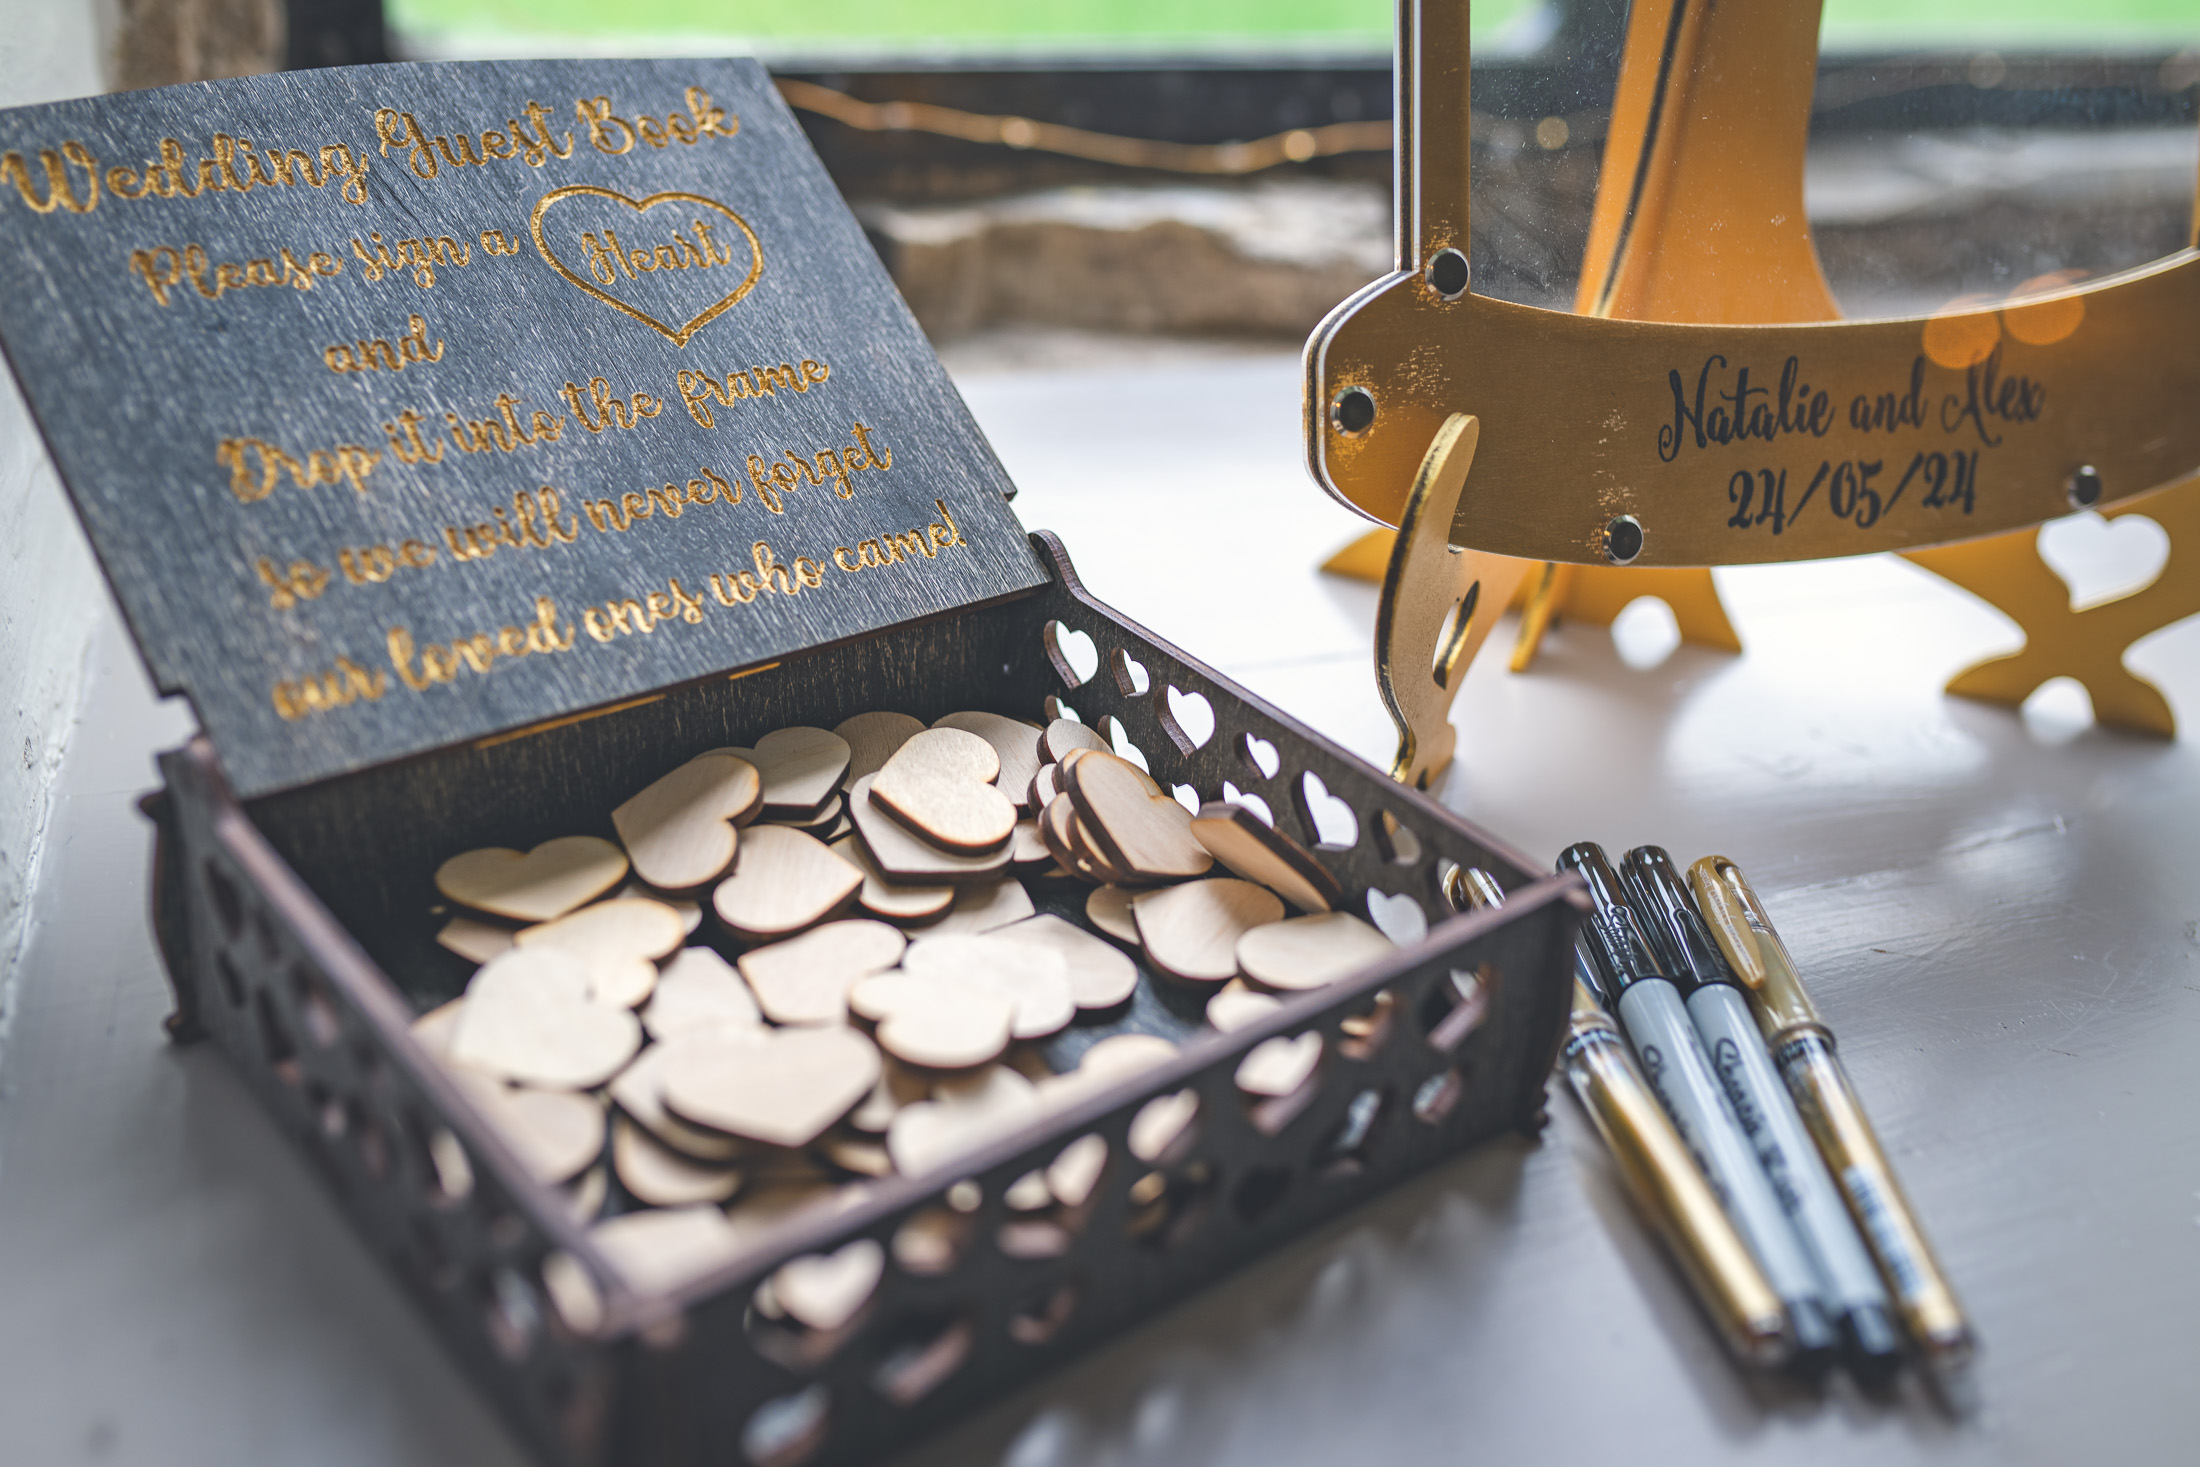 Wedding Guest Book
Please sign a Heart
and
Drop it into the frame
so we will never forget
our loved ones who came!
Natalie and Alex
24/05/24
Sharpie